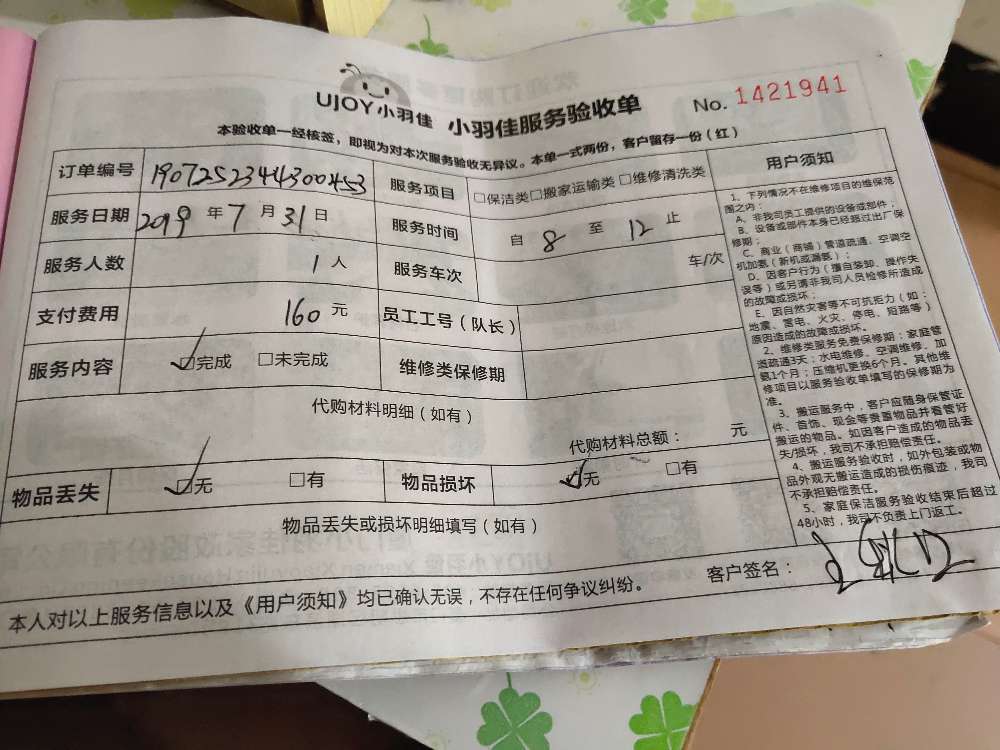 UJOY小羽佳 小羽佳服务验收单 No. 1421941
本验收单一经核签，即视为对本次服务验收无异议。本单一式两份，客户留存一份（红）
订单编号 1907252344300453 服务项目 □保洁类□搬家运输类□维修清洗类
服务日期 2019 年 7 月 31 日 服务时间 自 8 至 12 止
服务人数 1 人 服务车次 车/次
支付费用 160 元 员工工号（队长）
服务内容 ☑完成 □未完成 维修类保修期
代购材料明细（如有）
代购材料总额： 元
物品丢失 ☑无 □有 物品损坏 ☑无 □有
物品丢失或损坏明细填写（如有）
用户须知
1、下列情况不在维修项目的维保范
围之内：
A、非我司员工提供的设备或部件；
B、设备或部件本身已经超过出厂保
修期；
C、商业（商铺）管道疏通、空调空
机加氨（新机或漏氨）；
D、因客户行为（擅自装卸、操作失
误等）或另请非我司人员检修所造成
的故障或损坏；
E、因自然灾害等不可抗拒力（如：
地震、雷电、火灾、停电、短路等）
原因造成的故障或损坏。
2、维修类服务免费保修期：家庭管
道疏通3天；水电维修、空调维修、加
氨1个月；压缩机更换6个月。其他维
修项目以服务验收单填写的保修期为
准。
3、搬运服务中，客户应随身保管证
件、首饰、现金等贵重物品并看管好
搬运的物品。如因客户造成的物品丢
失/损坏，我司不承担赔偿责任。
4、搬运服务验收时，如外包装或物
品外观无搬运造成的损伤痕迹，我司
不承担赔偿责任。
5、家庭保洁服务验收结束后超过
48小时，我司不负责上门返工。
客户签名：
本人对以上服务信息以及《用户须知》均已确认无误，不存在任何争议纠纷。